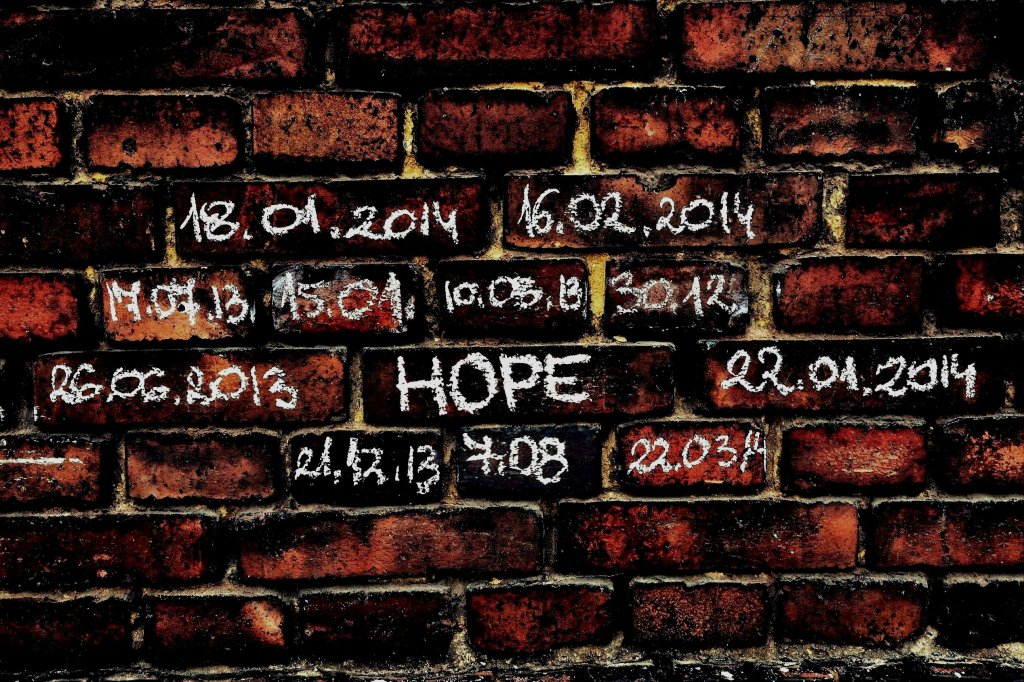 18.01.2014 16.02.2014
17.07.13 15.01. 10.03.13 30.12.
26.06.2013 HOPE 22.01.2014
21.12.13 7.08 22.03.14